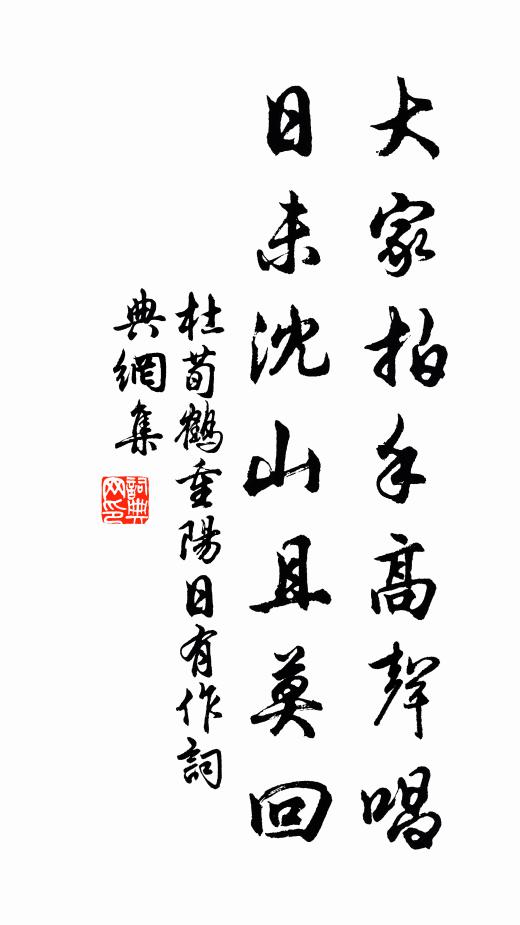 大家拍手高聲唱
日未沈山且莫回
杜荀鶴重陽日有作詞
典網集
詞典网印